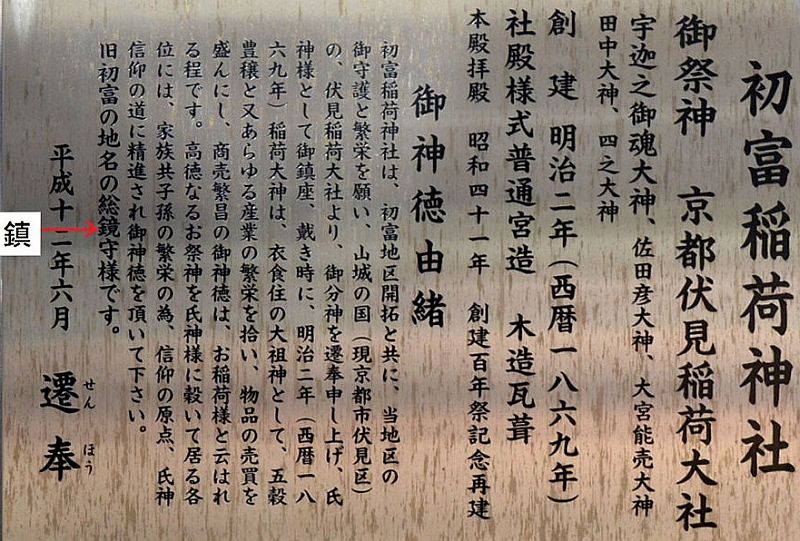 初富稲荷神社
御祭神 京都伏見稲荷大社
宇迦之御魂大神、佐田彦大神、大宮能売大神
田中大神、四之大神
創建 明治二年(西暦一八六九年)
社殿様式普通宮造 木造瓦葺
本殿拝殿 昭和四十一年 創建百年祭記念再建
御神徳由緒
初富稲荷神社は、初富地区開拓と共に、当地区の
御守護と繁栄を願い、山城の国(現京都市伏見区)
の、伏見稲荷大社より、御分神を遷奉申し上げ、氏
神様として御鎮座、戴き時に、明治二年(西暦一八
六九年)稲荷大神は、衣食住の大祖神として、五穀
豊穣と又あらゆる産業の繁栄を拾い、物品の売買を
盛んにし、商売繁昌の御神徳は、お稲荷様と云はれ
る程です。高徳なるお祭神を氏神様に穀いて居る各
位には、家族共子孫の繁栄の為、信仰の原点、氏神
信仰の道に精進され御神徳を頂いて下さい。
旧初富の地名の総鏡守様です。
鎮
平成十二年六月
遷奉
せん ほう